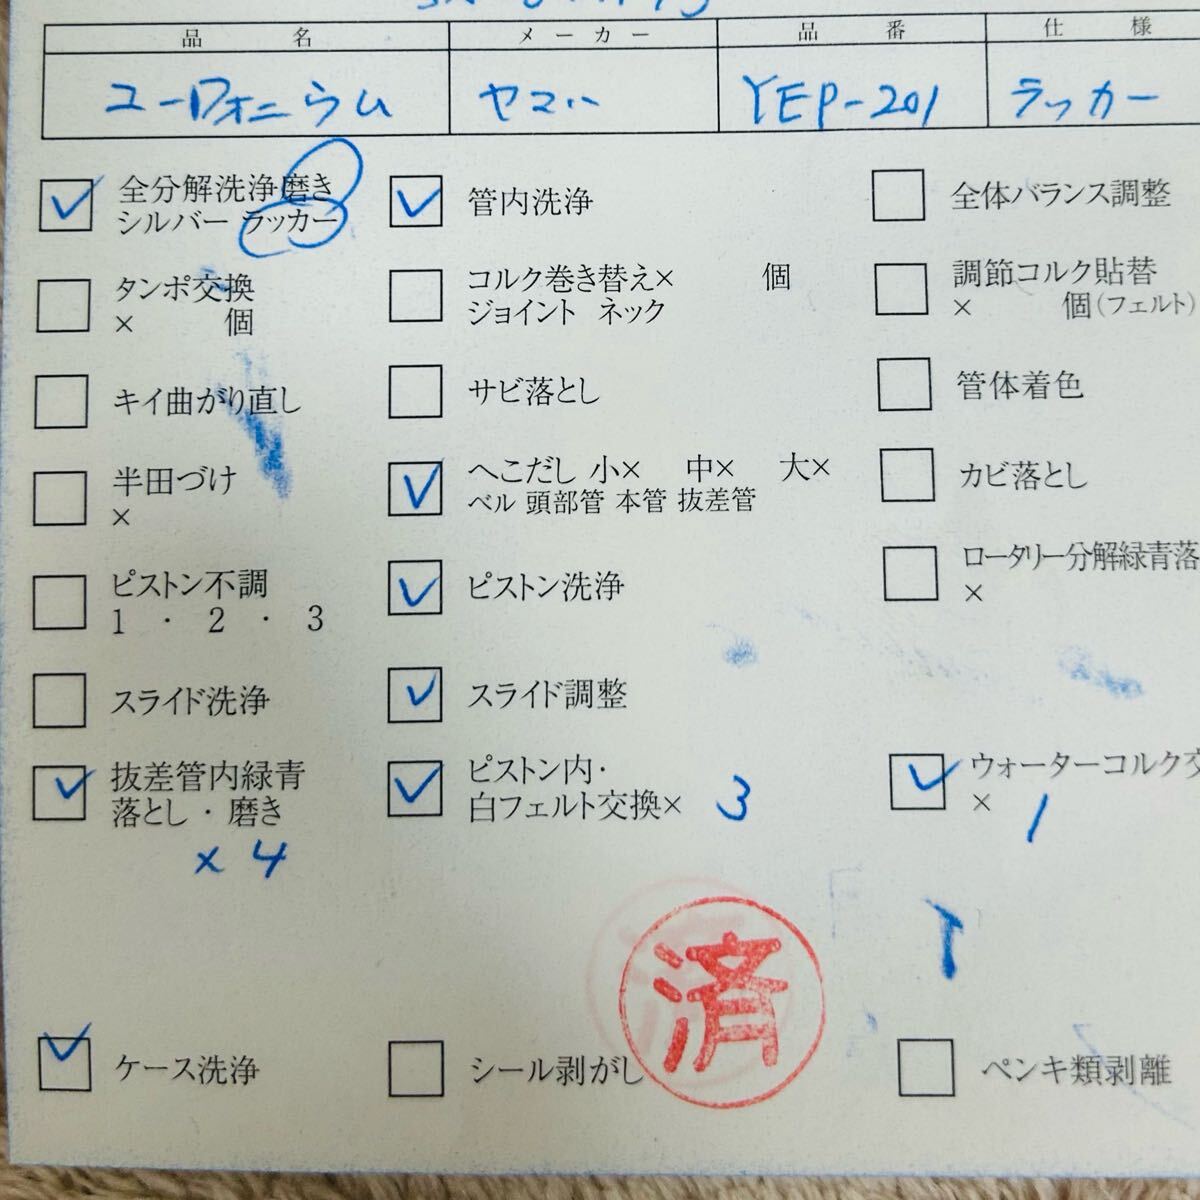 品名 メーカー 品番 仕様
ユーフォニウム ヤマハ YEP-201 ラッカー
全分解洗浄磨き
シルバー ラッカー
管内洗浄
全体バランス調整
タンポ交換
× 個
コルク巻き替え× 個
ジョイント ネック
調節コルク貼替
× 個(フェルト)
キイ曲がり直し
サビ落とし
管体着色
半田づけ
×
へこだし 小× 中× 大×
ベル 頭部管 本管 抜差管
カビ落とし
ピストン不調
1 ・ 2 ・ 3
ピストン洗浄
ロータリー分解緑青落
×
スライド洗浄
スライド調整
抜差管内緑青
落とし・磨き
×4
ピストン内・
白フェルト交換× 3
ウォーターコルク交
× 1
済
ケース洗浄
シール剥がし
ペンキ類剥離